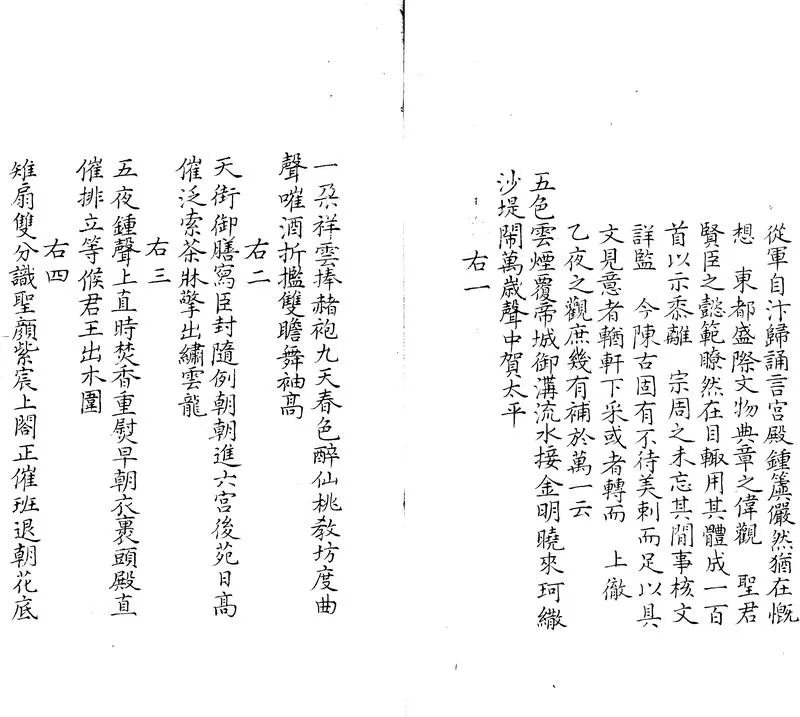 從軍自汴歸誦言宮殿鍾簴儼然猶在慨
想　東都盛際文物典章之偉觀　聖君
賢臣之懿範瞭然在目輙用其體成一百
首以示黍離　宗周之未忘其閒事核文
詳監　今陳古固有不待美刺而足以具
文見意者輶軒下采或者轉而　上徹
乙夜之觀庶幾有補於萬一云
五色雲煙覆帝城御溝流水接金明曉來珂繖
沙堤鬧萬歲聲中賀太平
右一
一朶祥雲捧赭袍九天春色醉仙桃敎坊度曲
聲嗺酒折檻雙瞻舞袖高
右二
天街御膳寫臣封隨例朝朝進六宮後苑日高
催泛索茶牀擎出繡雲龍
右三
五夜鍾聲上直時焚香重熨早朝衣裹頭殿直
催排立等候君王出木圍
右四
雉扇雙分識聖顔紫宸上閤正催班退朝花底